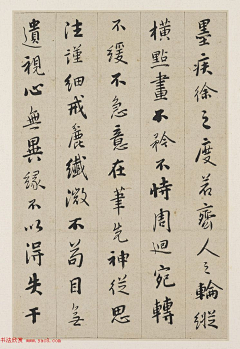 墨疾徐之度若齊人之輪縱
橫點畫不矜不恃周迴宛轉
不緩不急意在筆先神從思
注謹細戒麄纖微不苟目無
遺視心無異緣不以得失干